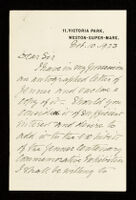 11, VICTORIA PARK,
WESTON-SUPER-MARE.
Feb. 10. 1923
Dear Sir
I have in my possession
an autographed letter of
Jenner and enclose a
copy of it. Should you
consider it of sufficient
interest and desire to
add it to the exhibit
of the Jenner Centenary
Commemorative Exhibition
I shall be willing to